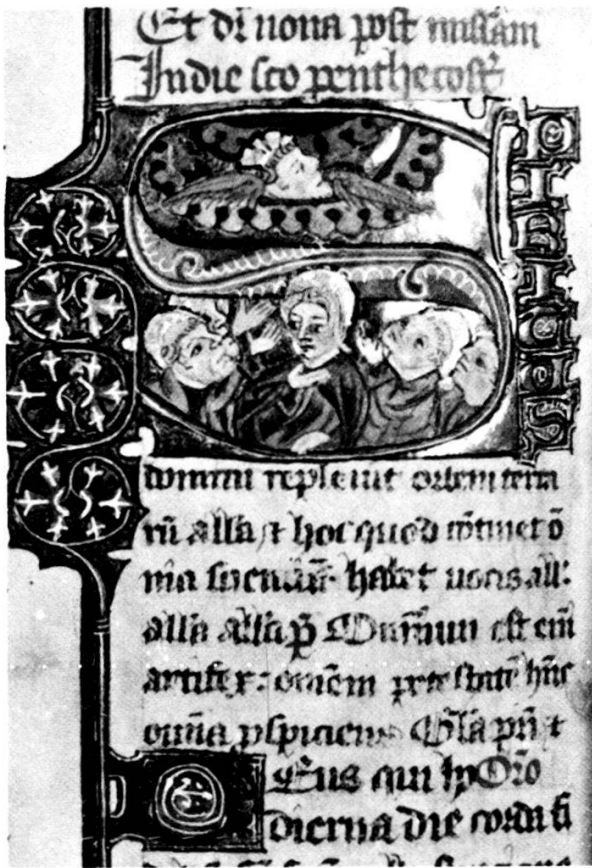 Et dr nona post missam
In die sco penthecost
S
PIRITUS
domini repleuit orbem terra
rū alla ⁊ hoc quod ɔtinet o
mnia scienciā habet uocis all:
alla alla p̄ Omnium est eni
artifex: omem potestatē hn̄s
omnia pspiciens Gl̄a pri ⁊
DEus qui ho Oro
dierna die corda fi